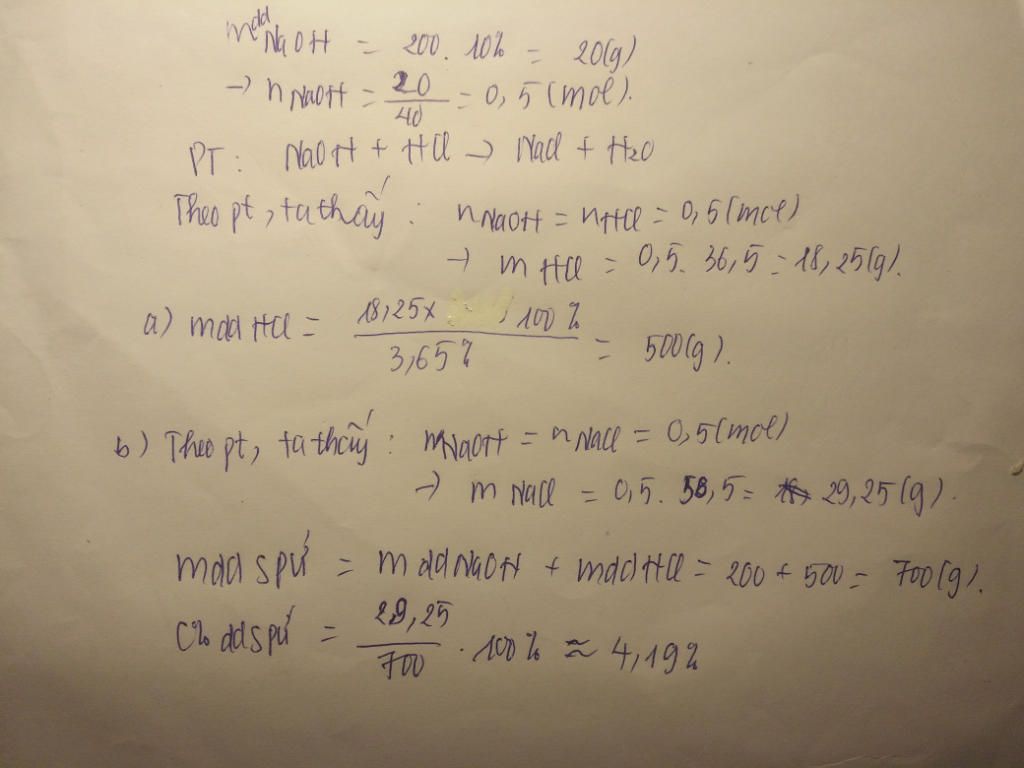 mdd NaOH = 200. 10% = 20(g)
→ nNaOH = 20/40 = 0,5 (mol).
PT: NaOH + HCl → NaCl + H2O
Theo pt, ta thấy: nNaOH = nHCl = 0,5 (mol)
→ mHCl = 0,5. 36,5 = 18,25(g).
a) mdd HCl = 18,25x 100% / 3,65% = 500(g).
b) Theo pt, ta thấy: nNaOH = nNaCl = 0,5 (mol)
→ mNaCl = 0,5. 58,5 = 29,25(g).
mdd spứ = mdd NaOH + mdd HCl = 200 + 500 = 700(g).
C% dd spứ = 29,25/700 . 100% ≈ 4,19%